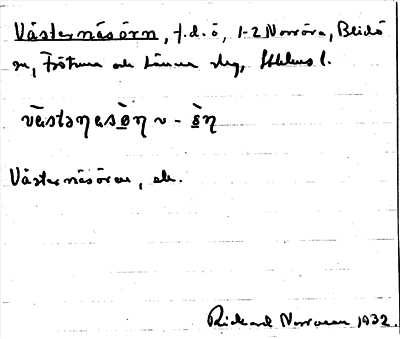 Västernäsörn, f.d. ö, 1-2 Norröra, Blidö
sn, Frötuna och Länna slg, Sthlms l.
västəƞasö̀ƞ v - ö̀ƞ
Västernäsören, ek.
Rickard Norrman 1932.